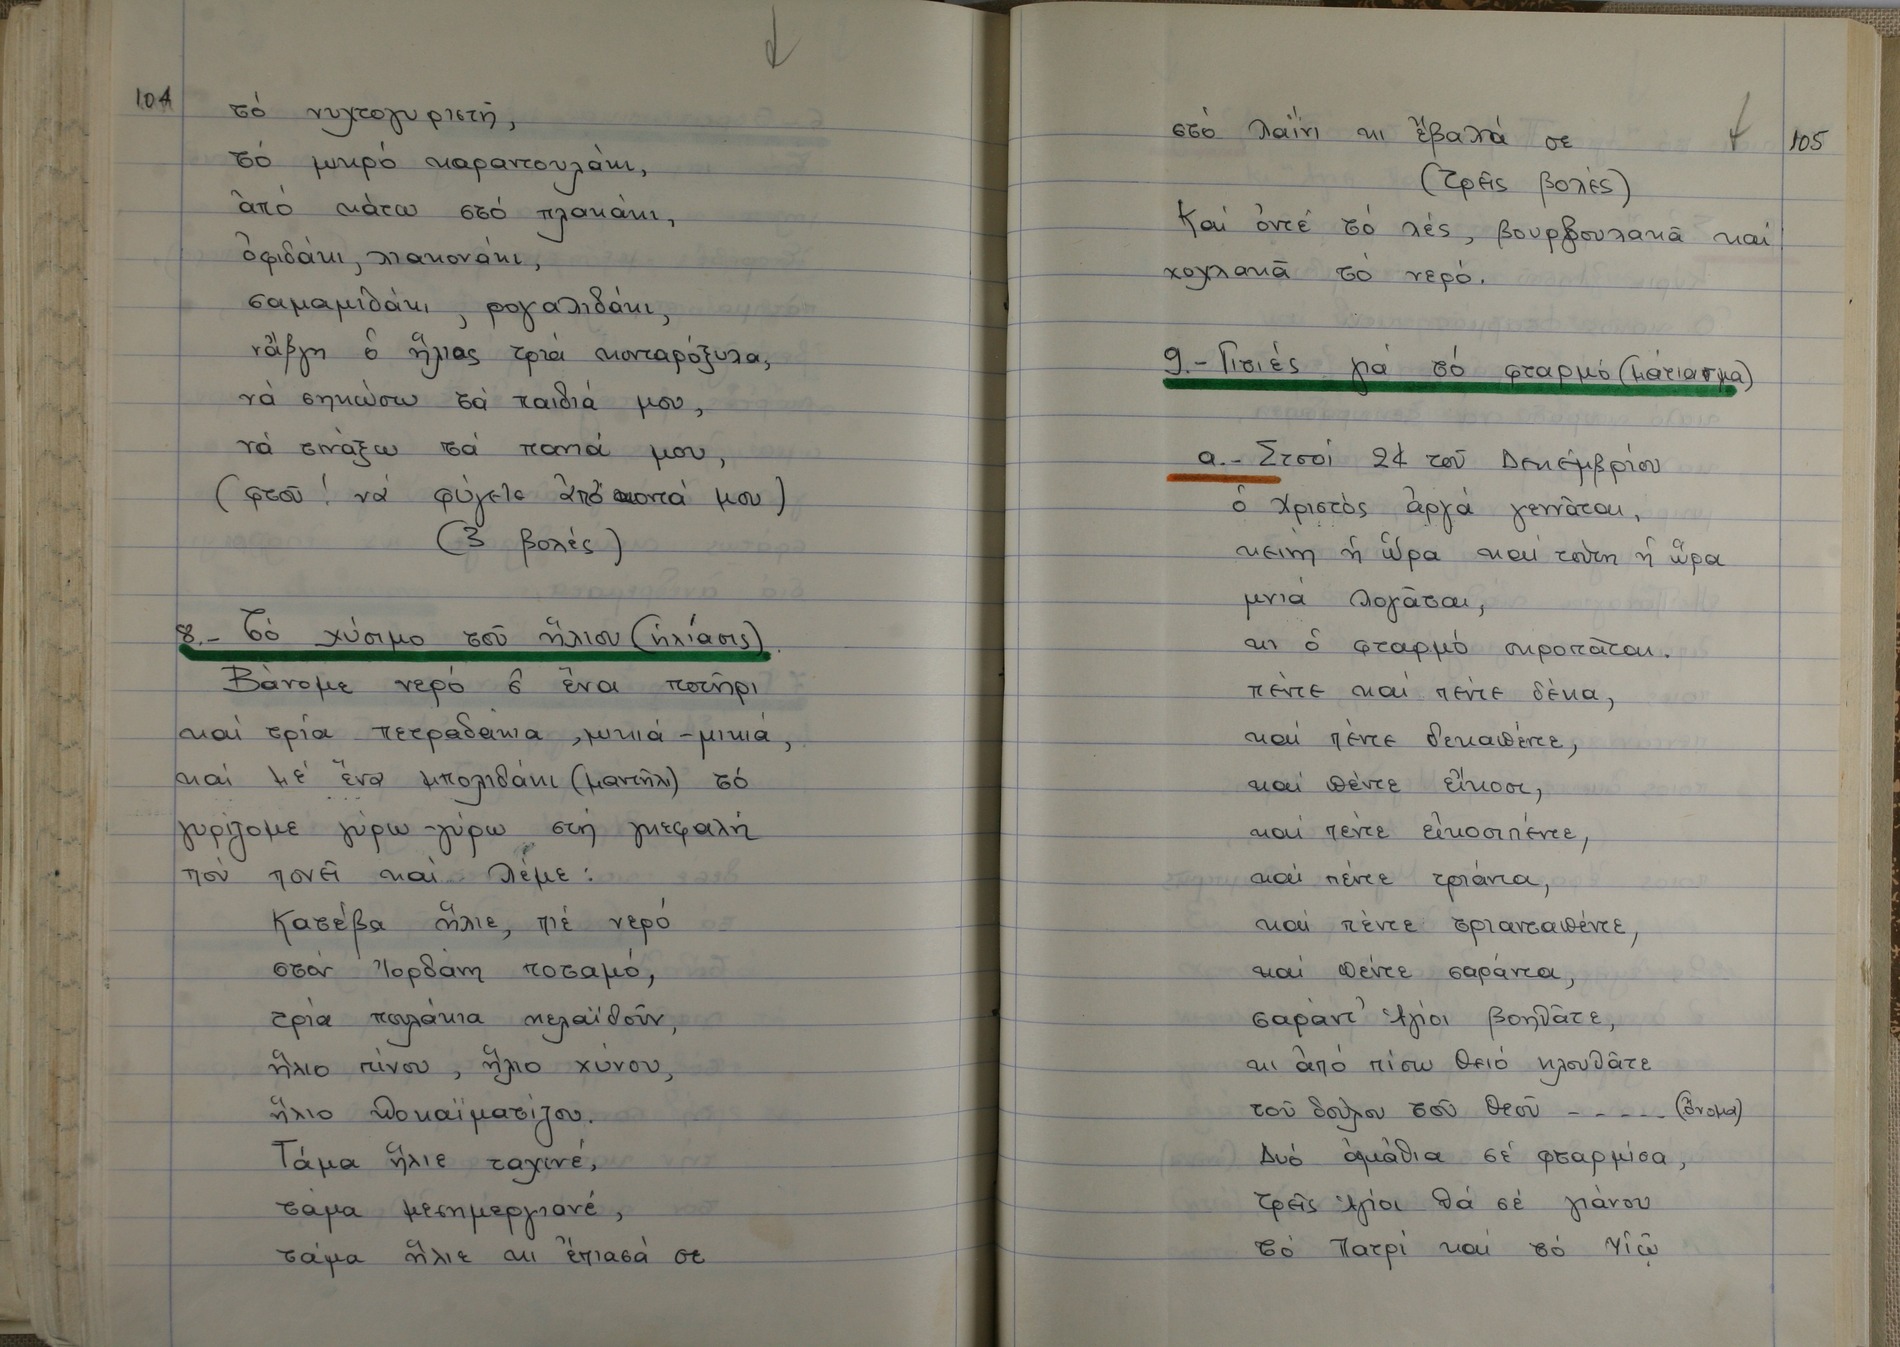 104
τό νυχτογυριστή,
τό μικρό καραντουλάκι,
ἀπό κάτω στό πλακάκι,
ὀφιδάκι, λιακονάκι,
σαμαμιδάκι, ρογαλιδάκι,
νἄβγη ὁ ἥλιος τριά κονταρόξυλα,
νά σηκώσω τά παιδιά μου,
νά τινάξω τά πανιά μου,
(φτοῦ! νά φύγετε ἀπό κοντά μου)
(3 βολές)
8.- Τό χύσιμο τοῦ ἥλιου (ἡλίασις).
Βάνομε νερό σ' ἕνα ποτῆρι
καί τρία πετραδάκια, μικιά-μικιά,
καί μέ ἕνα μπολιδάκι (μαντήλι) τό
γυρίζομε γύρω-γύρω στή γκεφαλή
πού πονεῖ καί λέμε:
Κατέβα ἥλιε, πιέ νερό
στόν Ἰορδάνη ποταμό,
τρία πουλάκια κελαϊδοῦν,
ἥλιο πίνου, ἥλιο χύνου,
ἥλιο ποκαϊματίζου.
Τάμα ἥλιε ταχινέ,
τάμα μεσημεργιανέ,
τάμα ἥλιε κι ἔπιασά σε
105
στό λαΐνι κι ἔβαλά σε
(τρεῖς βολές)
Καί ὀντέ τό λές, βουρβουλακᾶ καί
χοχλακᾶ τό νερό.
9.- Γιτιές γιά τό φταρμό (μάτιασμα)
α.- Στσοί 24 τοῦ Δεκέμβριου
ὁ Χριστός ἀργά γεννᾶται,
κείνη ἡ ὥρα καί τούτη ἡ ὥρα
μνιά λογᾶται,
κι ὁ φταρμό σκροπᾶται.
πέντε καί πέντε δέκα,
καί πέντε δεκαπέντε,
καί πέντε εἴκοσι,
καί πέντε εἰκοσιπέντε,
καί πέντε τριάντα,
καί πέντε τριανταπέντε,
καί πέντε σαράντα,
σαράντ' Ἅγιοι βοηθᾶτε,
κι ἀπό πίσω θειό κλουθᾶτε
τοῦ δούλου τοῦ Θεοῦ - - - - - (ὄνομα)
Δυό ἀμάθια σέ φταρμίσα,
τρεῖς Ἅγιοι θά σέ γιάνου
τό Πατρί καί τό Υἱῷ